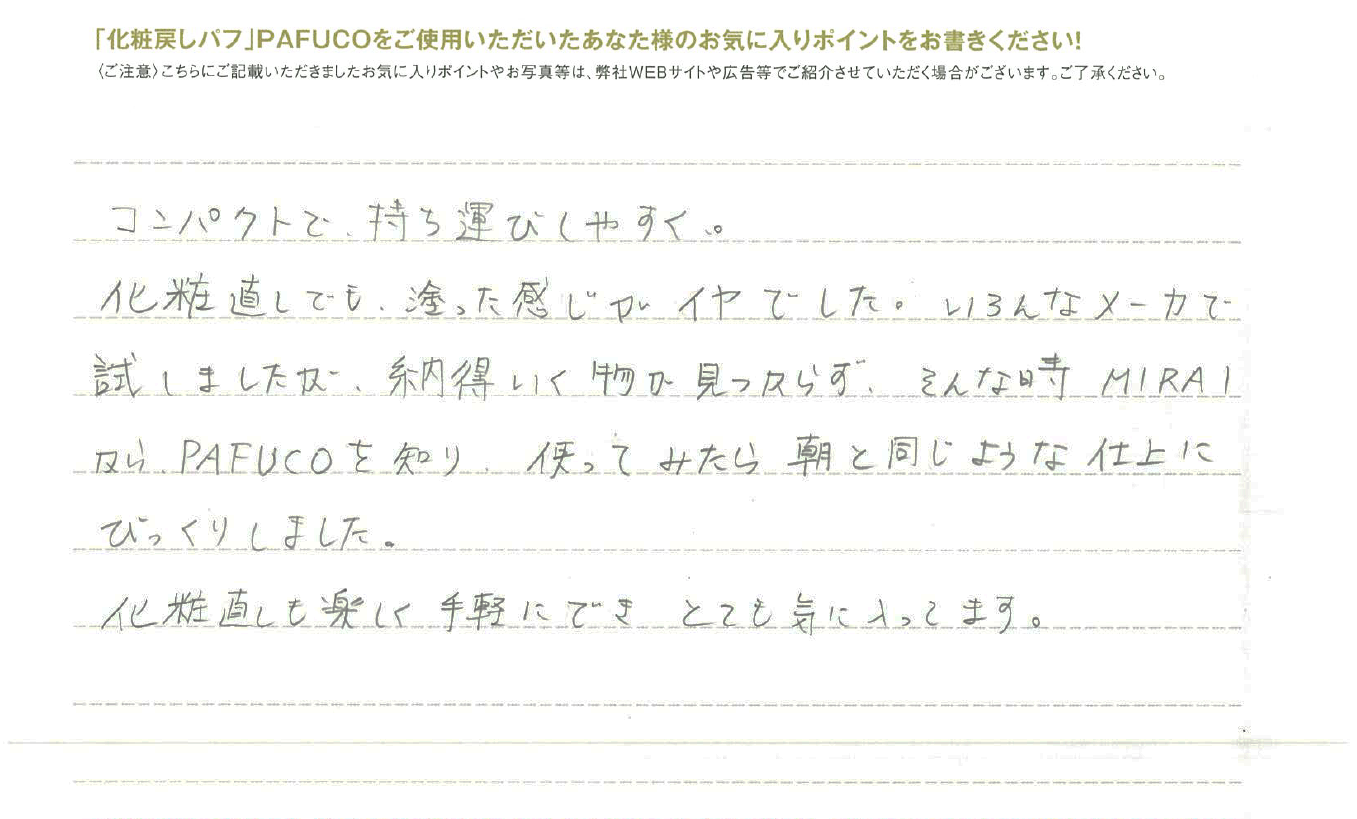 「化粧戻しパフ」PAFUCOをご使用いただいたあなた様のお気に入りポイントをお書きください!
〈ご注意〉こちらにご記載いただきましたお気に入りポイントやお写真等は、弊社WEBサイトや広告等でご紹介させていただく場合がございます。ご了承ください。
コンパクトで、持ち運びしやすく、。
化粧直しでも、塗った感じがイヤでした。いろんなメーカで
試しましたが、納得いく物が見つからず、そんな時MIRAI
から、PAFUCOを知り、使ってみたら朝と同じような仕上に
びっくりしました。
化粧直しも楽しく手軽にできとても気に入ってます。